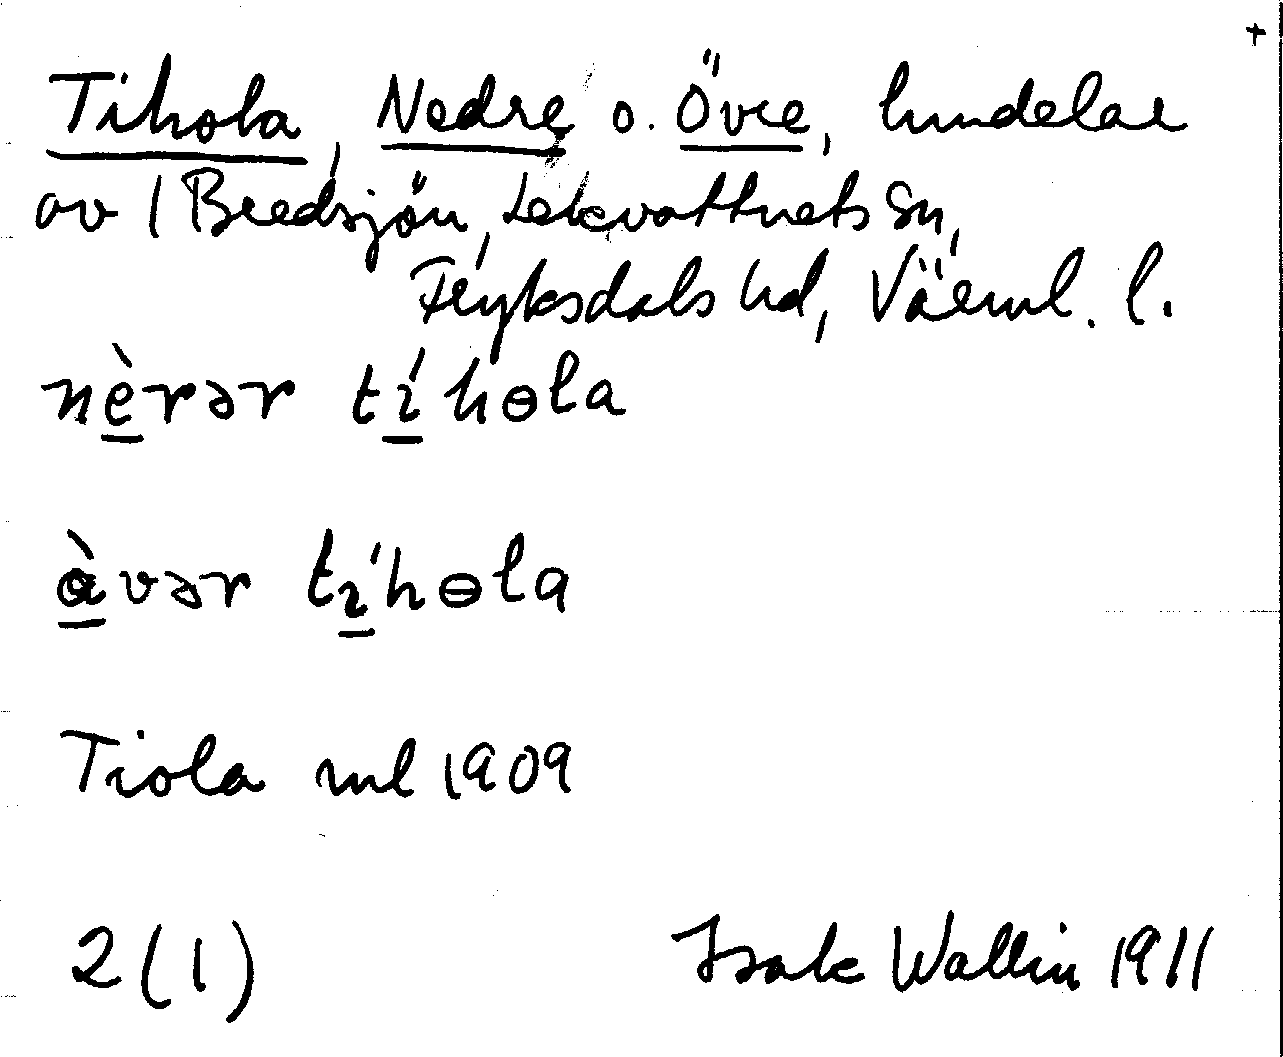 +
Tihola, Nedre o. Övre, hmdelar
av 1 Bredsjön, Lekvattnets sn,
Fryksdals hd, Värml. l.
nèrər tíhɵla
àvər tíhɵla
Tiola ml 1909
2(1) Isak Wallin 1911